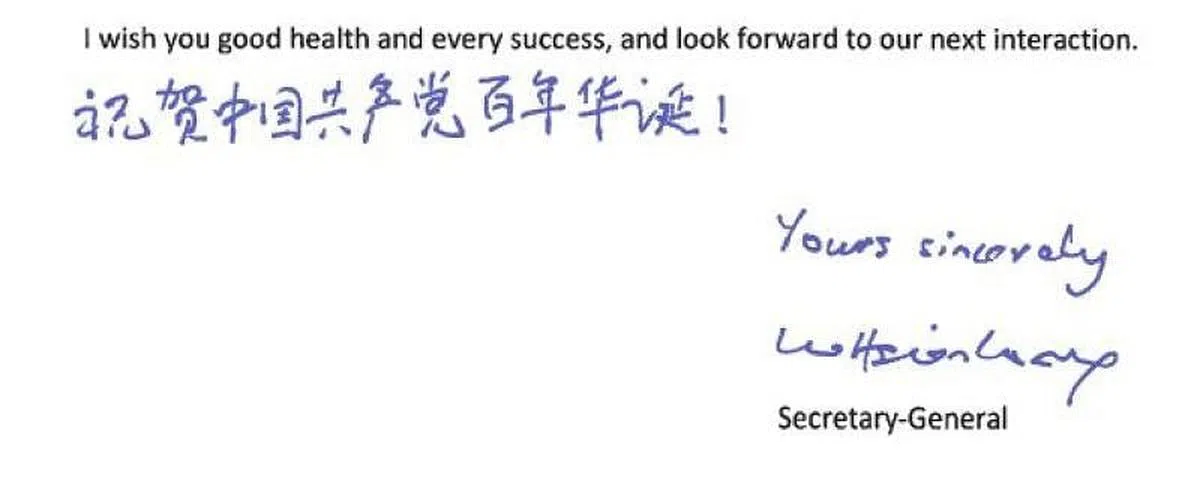 I wish you good health and every success, and look forward to our next interaction.
祝贺中国共产党百年华诞!
Yours sincerely
Lee Hsien Loong
Secretary-General